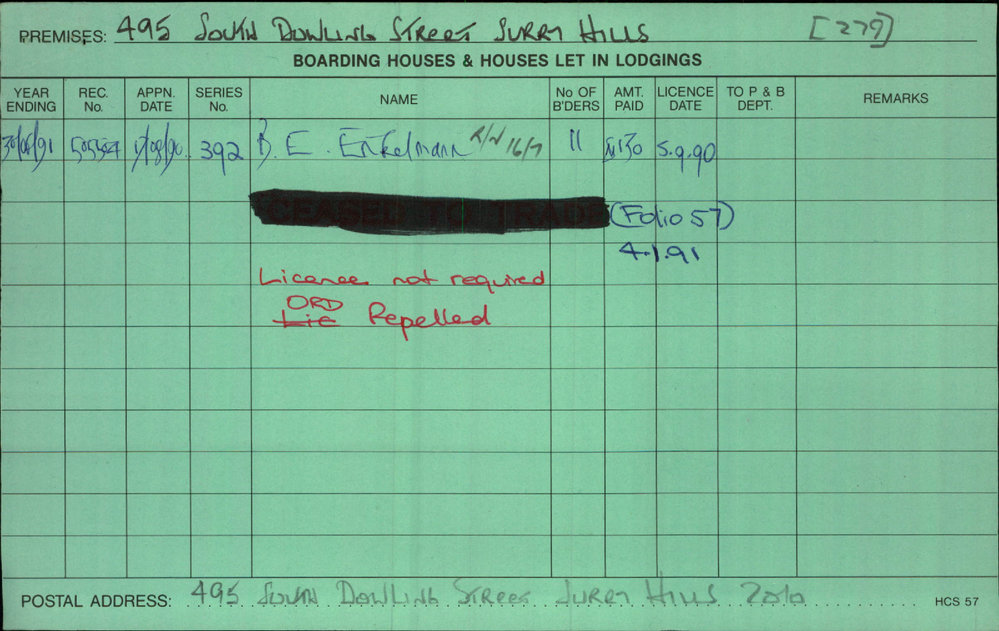 PREMISES: 495 SOUTH DOWLING STREET SURRY HILLS [279]
BOARDING HOUSES & HOUSES LET IN LODGINGS
YEAR ENDING REC. No. APPN. DATE SERIES No. NAME No OF B'DERS AMT. PAID LICENCE DATE TO P & B DEPT. REMARKS
30/06/91 /08/90 392 B. E. Enkelmann R/N 16/7 11 $130 5.9.90
CEASED TO TRADE (Folio 57)
4.1.91
Licence not required
ORD
Lic Repelled
POSTAL ADDRESS: 495 SOUTH DOWLING STREET SURRY HILLS 2010 HCS 57